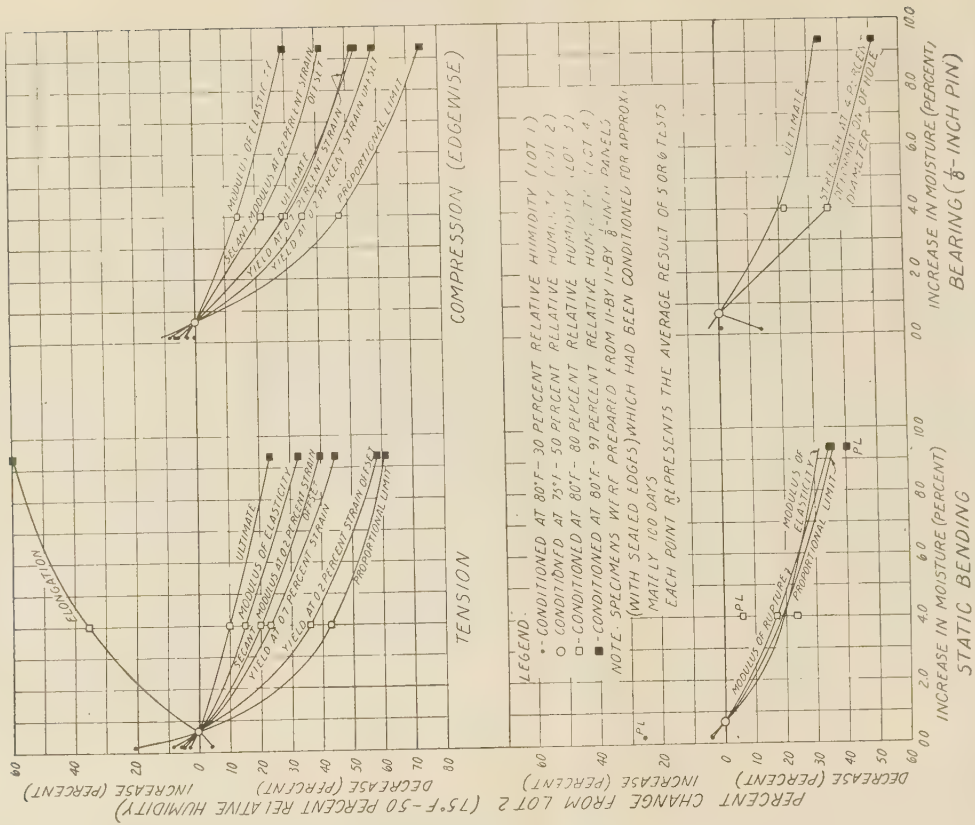 PERCENT CHANGE FROM LOT 2 (75°F-50 PERCENT RELATIVE HUMIDITY)
INCREASE (PERCENT)
DECREASE (PERCENT)
60
40
20
0
10
20
30
40
50
60
70
80
ELONGATION
ULTIMATE
MODULUS OF ELASTICITY
SECANT MODULUS AT 0.2 PERCENT STRAIN
OFFSET
YIELD AT 0.7 PERCENT STRAIN
YIELD AT 0.2 PERCENT STRAIN OFFSET
PROPORTIONAL LIMIT
TENSION
MODULUS OF ELASTICITY
SECANT MODULUS AT 0.2 PERCENT STRAIN
OFFSET
ULTIMATE
YIELD AT PERCENT STRAIN
YIELD AT 0.2 PERCENT STRAIN OFFSET
PROPORTIONAL LIMIT
COMPRESSION (EDGEWISE)
LEGEND:
- CONDITIONED AT 80°F - 30 PERCENT RELATIVE HUMIDITY (LOT 1)
CONDITIONED AT 75°F - 50 PERCENT RELATIVE HUMIDITY (LOT 2)
- CONDITIONED AT 80°F - 80 PERCENT RELATIVE HUMIDITY (LOT 3)
- CONDITIONED AT 80°F - 97 PERCENT RELATIVE HUMIDITY (LOT 4)
NOTE: SPECIMENS WERE PREPARED FROM 11-BY 11-BY 1/8-INCH PANELS
(WITH SEALED EDGES) WHICH HAD BEEN CONDITIONED FOR APPROXI-
MATELY 100 DAYS
EACH POINT REPRESENTS THE AVERAGE RESULT OF 5 OR 6 TESTS
INCREASE (PERCENT)
DECREASE (PERCENT)
60
40
20
0
10
20
30
40
50
60
PL
PL
MODULUS OF RUPTURE
MODULUS OF
ELASTICITY
PROPORTIONAL LIMIT
PL
0.0 2.0 4.0 6.0 8.0 10.0
INCREASE IN MOISTURE (PERCENT)
STATIC BENDING
ULTIMATE
STRENGTH AT 4 PERCENT
DEFORMATION OF HOLE
DIAMETER
0.0 2.0 4.0 6.0 8.0 10.0
INCREASE IN MOISTURE (PERCENT)
BEARING (1/8-INCH PIN)